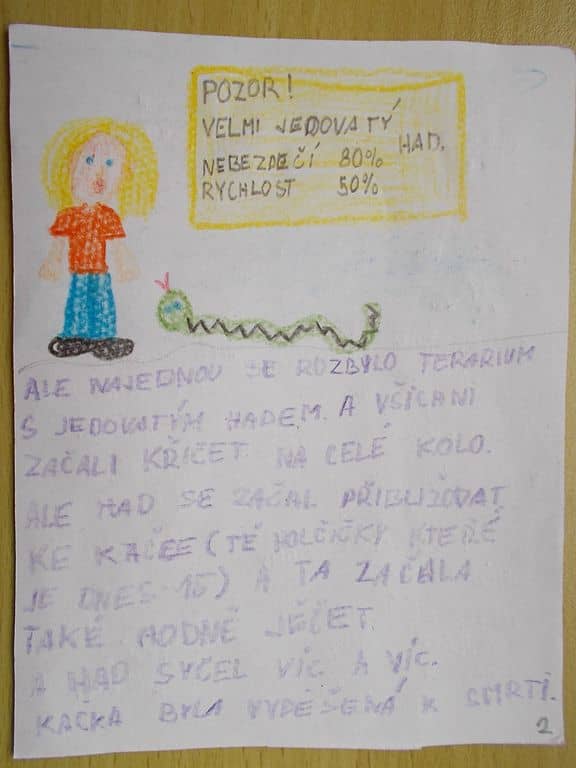 POZOR!
VELMI JEDOVATÝ HAD.
NEBEZPEČÍ 80%
RYCHLOST 50%
ALE NAJEDNOU SE ROZBYLO TERARIUM
S JEDOVATÝM HADEM. A VŠICHNI
ZAČALI KŘIČET NA CELÉ KOLO.
ALE HAD SE ZAČAL PŘIBLIŽOVAT
KE KAČEE (TÉ HOLČIČKY KTERÉ
JE DNES 15) A TA ZAČALA
TAKÉ HODNĚ JEČET.
A HAD SYČEL VÍC A VÍC.
KAČKA BYLA VYDĚŠENÁ K SMRTI.
2